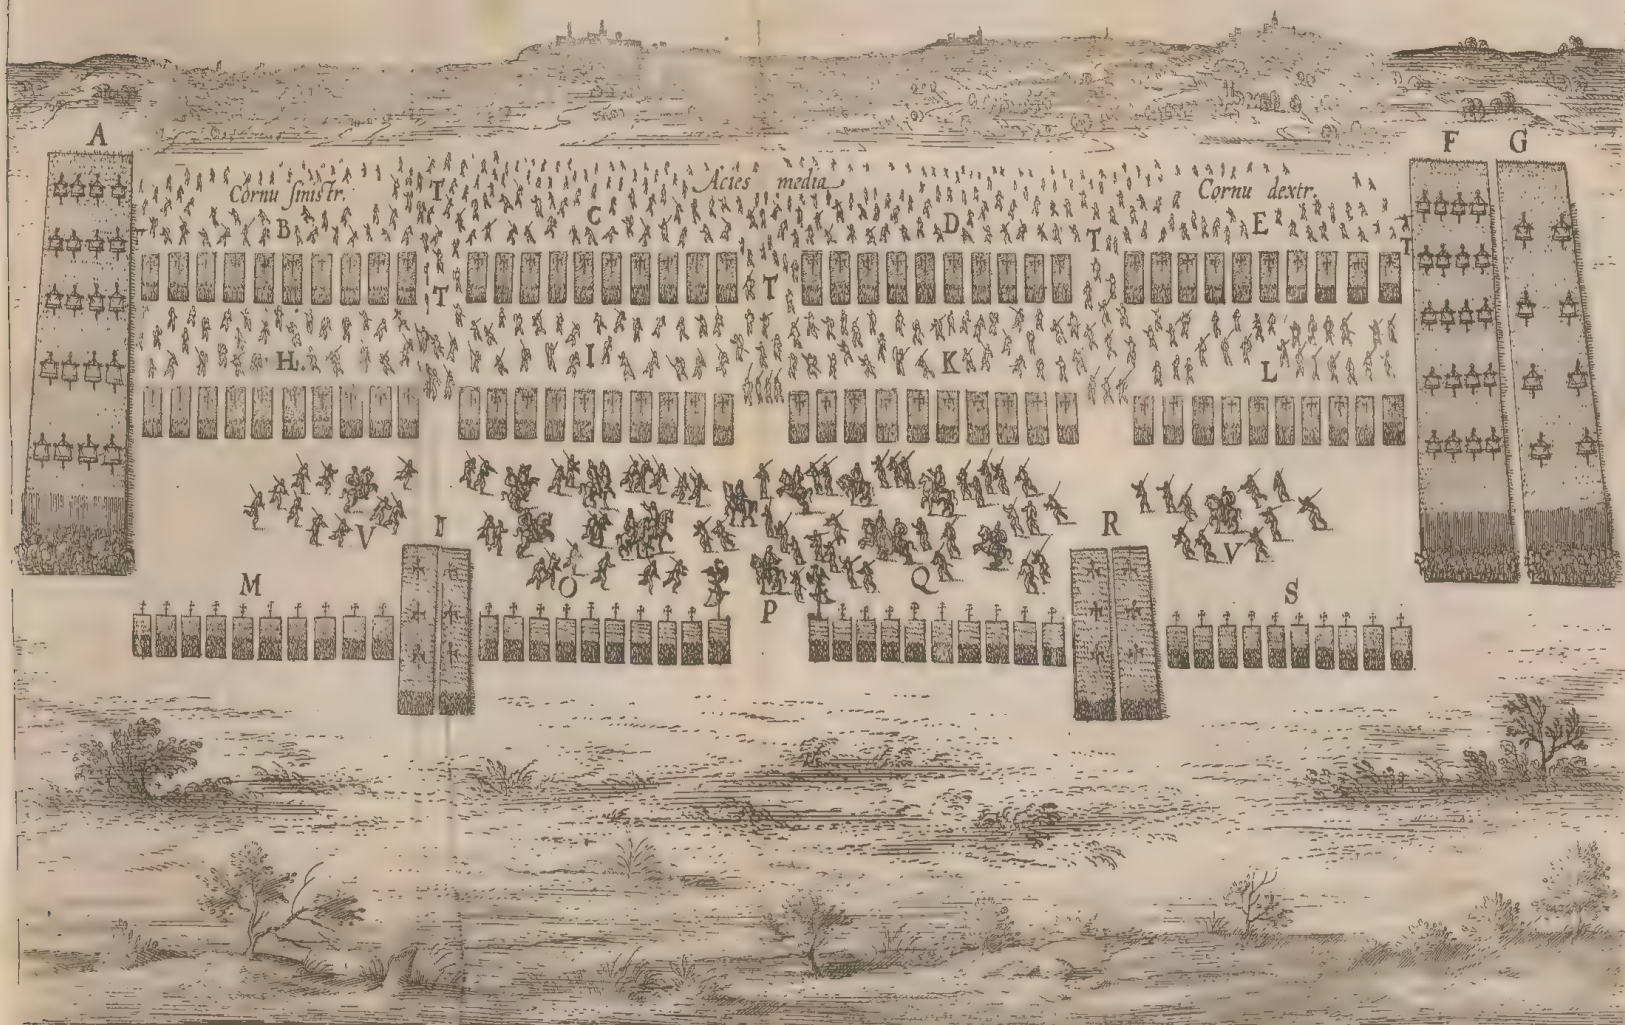 A
F G
Cornu sinistr.
Acies media
Cornu dextr.
T
B
C
D
E
T
T
T
T
H.
I
K
L
V
R
V
M
O
P
Q
S